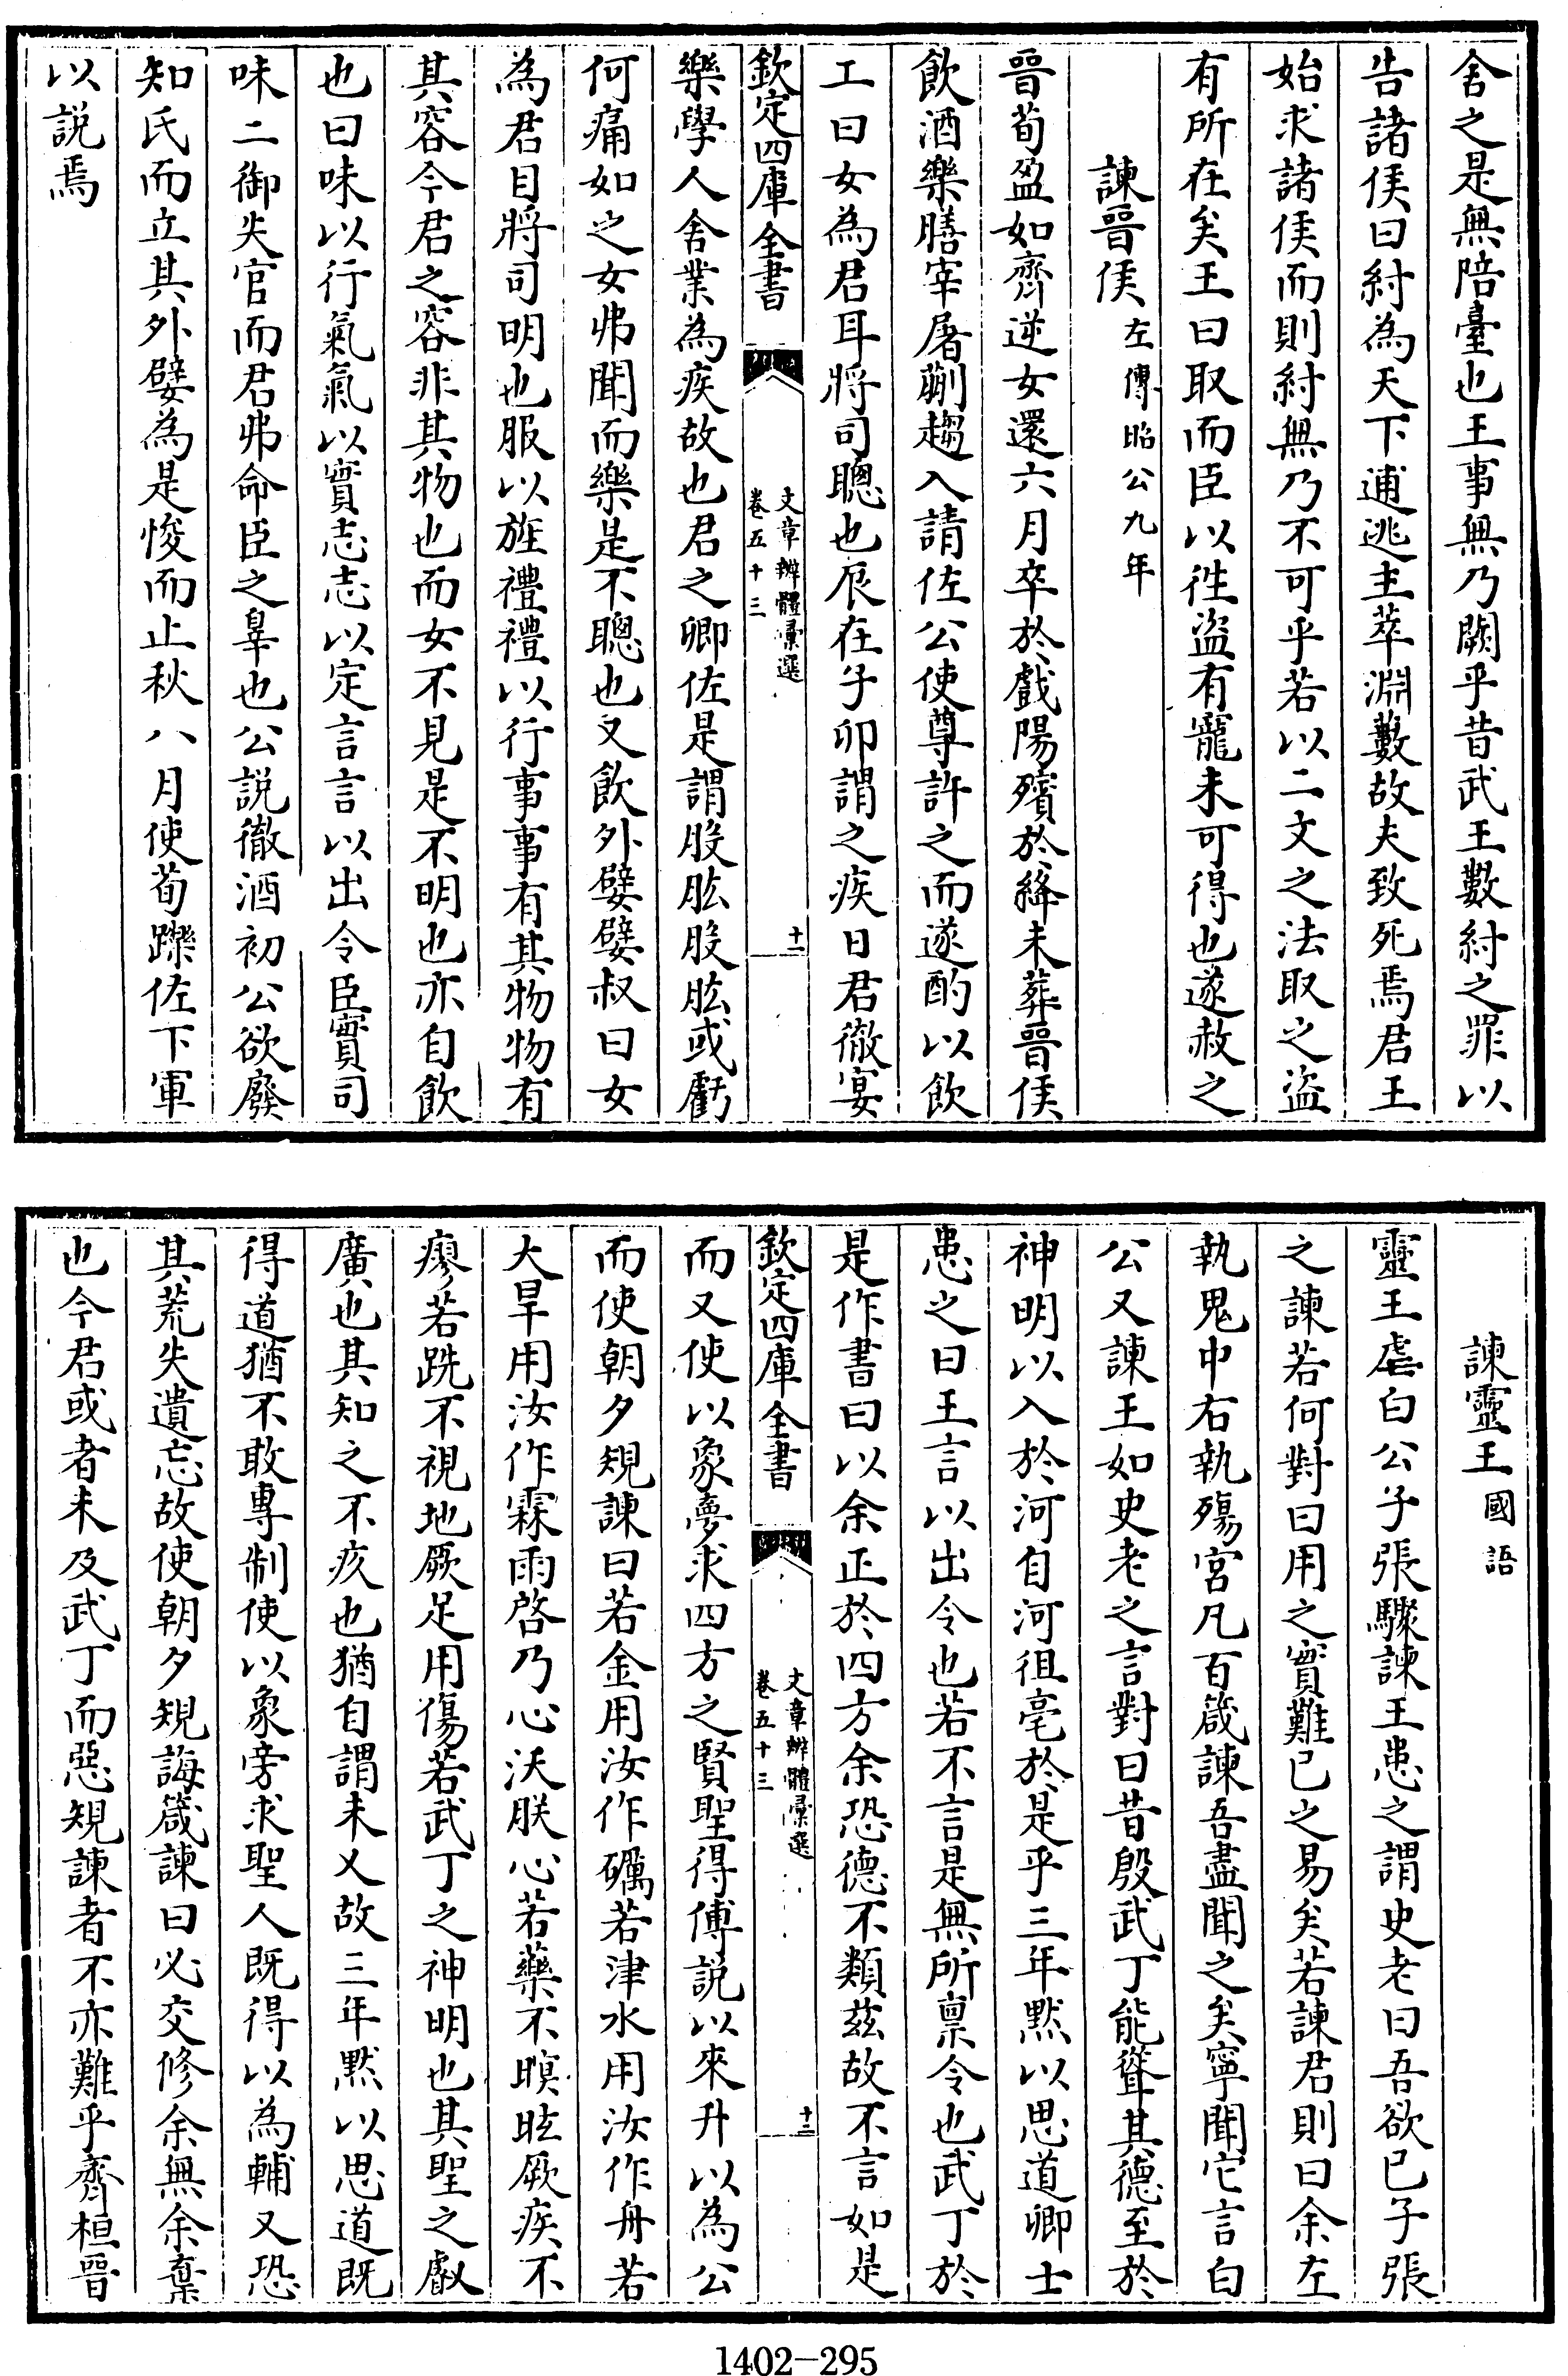 舍之是無陪臺也王事無乃闕乎昔武王數紂之罪以
告諸侯曰紂為天下逋逃主萃淵藪故夫致死焉君王
始求諸侯而則紂無乃不可乎若以二文之法取之盜
有所在矣王曰取而臣以徃盜有寵未可得也遂赦之
諫晉侯左傳昭公九年
晉荀盈如齊逆女還六月卒於戲陽殯於絳未葬晉侯
飲酒樂膳宰屠蒯趨入請佐公使尊許之而遂酌以飲
工曰女為君耳將司聰也辰在子卯謂之疾日君徹宴
樂學人舍業為疾故也君之卿佐是謂股肱股肱或虧
何痛如之女弗聞而樂是不聰也又飲外嬖嬖叔曰女
為君目將司明也服以旌禮禮以行事事有其物物有
其容今君之容非其物也而女不見是不明也亦自飲
也曰味以行氣氣以實志志以定言言以出令臣實司
味二御失官而君弗命臣之辠也公說徹酒初公欲廢
知氏而立其外嬖為是悛而止秋八月使荀躒佐下軍
以說焉
欽定四庫全書
文章辨體彙選
卷五十三
十一
諫靈王國語
靈王虐白公子張驟諫王患之謂史老曰吾欲已子張
之諫若何對曰用之實難已之易矣若諫君則曰余左
執鬼中右執殤宮凡百箴諫吾盡聞之矣寧聞它言白
公又諫王如史老之言對曰昔殷武丁能聳其德至於
神明以入於河自河徂亳於是乎三年默以思道卿士
患之曰王言以出令也若不言是無所稟令也武丁於
是作書曰以余正於四方余恐德不類茲故不言如是
而又使以象夢求四方之賢聖得傅說以來升以為公
而使朝夕規諫曰若金用汝作礪若津水用汝作舟若
大旱用汝作霖雨啓乃心沃朕心若藥不瞑眩厥疾不
瘳若跣不視地厥足用傷若武丁之神明也其聖之叡
廣也其知之不疚也猶自謂未乂故三年默以思道既
得道猶不敢專制使以象旁求聖人既得以為輔又恐
其荒失遺忘故使朝夕規誨箴諫曰必交修余無余棄
也今君或者未及武丁而惡規諫者不亦難乎齊桓晉
欽定四庫全書
文章辨體彙選
卷五十三
十二
1402-295